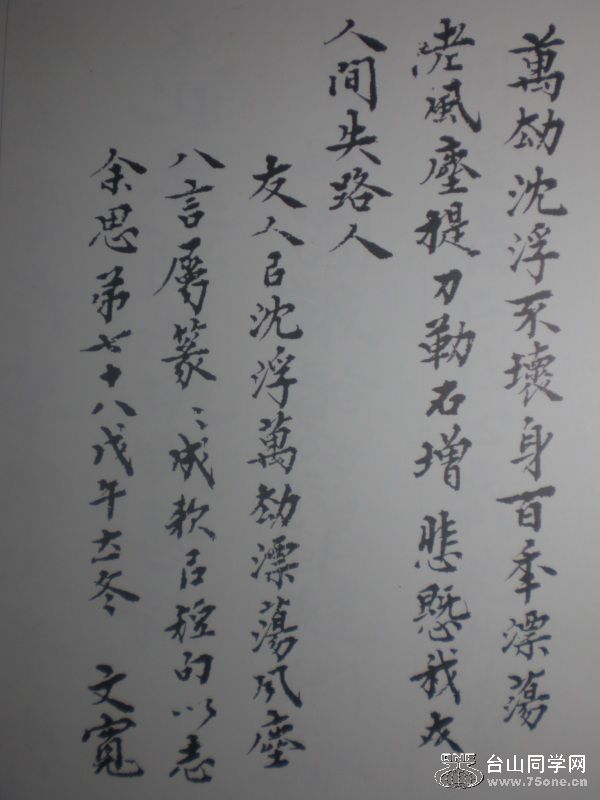 萬劫沈浮不壞身百秊漂蕩
老風塵提刀勒石增悲慨我亦
人間失路人
友人㠯沈浮萬劫漂蕩风塵
八言屬篆〻成款㠯短句以志
余思弟七十八戊午立冬 文寬
台山同学网
www.75one.cn